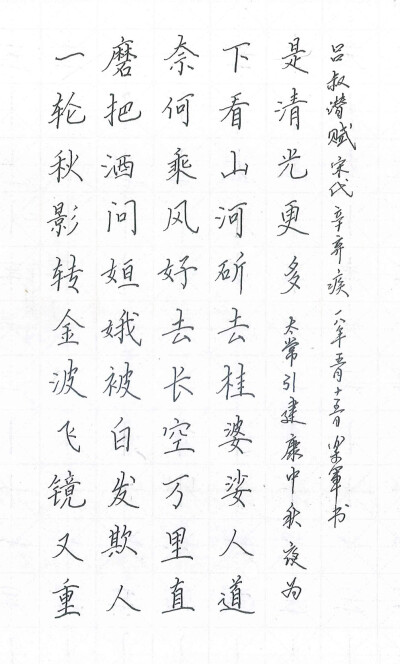 一轮秋影转金波飞镜又重
磨把酒问姮娥被白发欺人
奈何乘风好去长空万里直
下看山河斫去桂婆娑人道
是清光更多 太常引建康中秋夜为
吕叔潜赋宋代辛弃疾 一八年 軍书